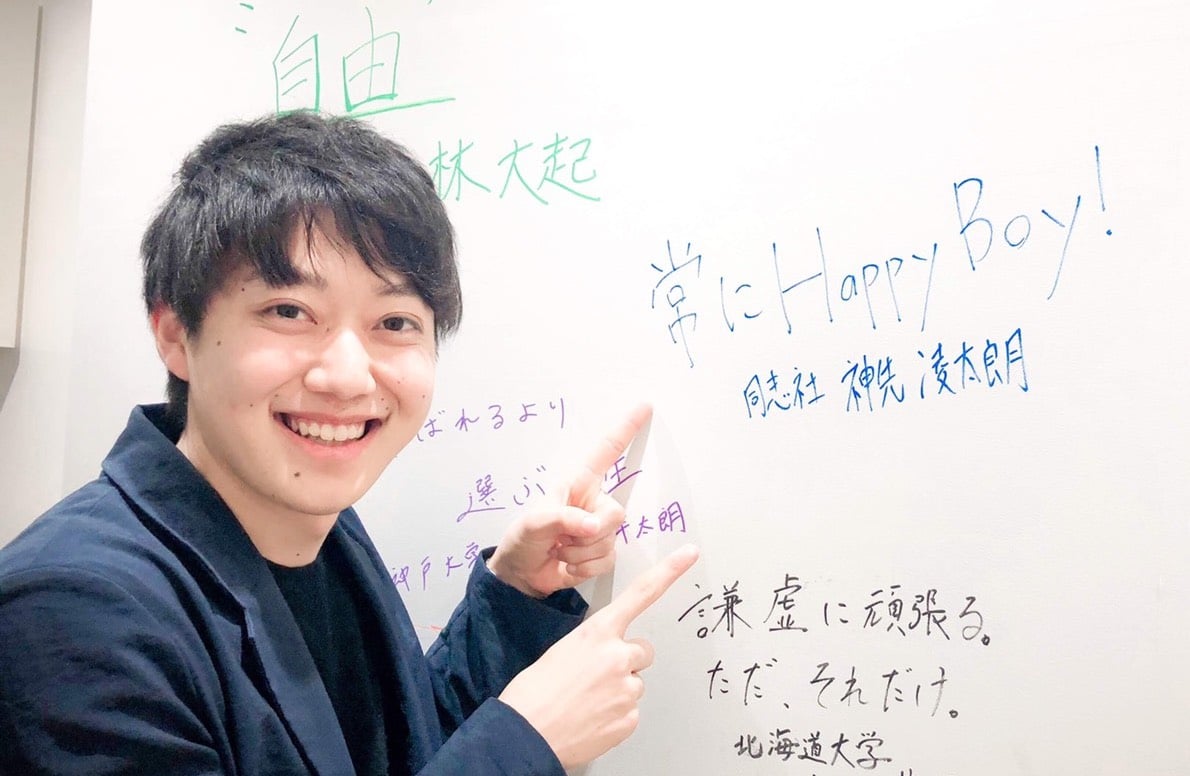 "自由"
林大起
常にHappy Boy!
同志社 神先 凌太朗
ばれるより
選ぶ 生
神戸大学 太朗
謙虚に頑張る。
ただ、それだけ。
北海道大学